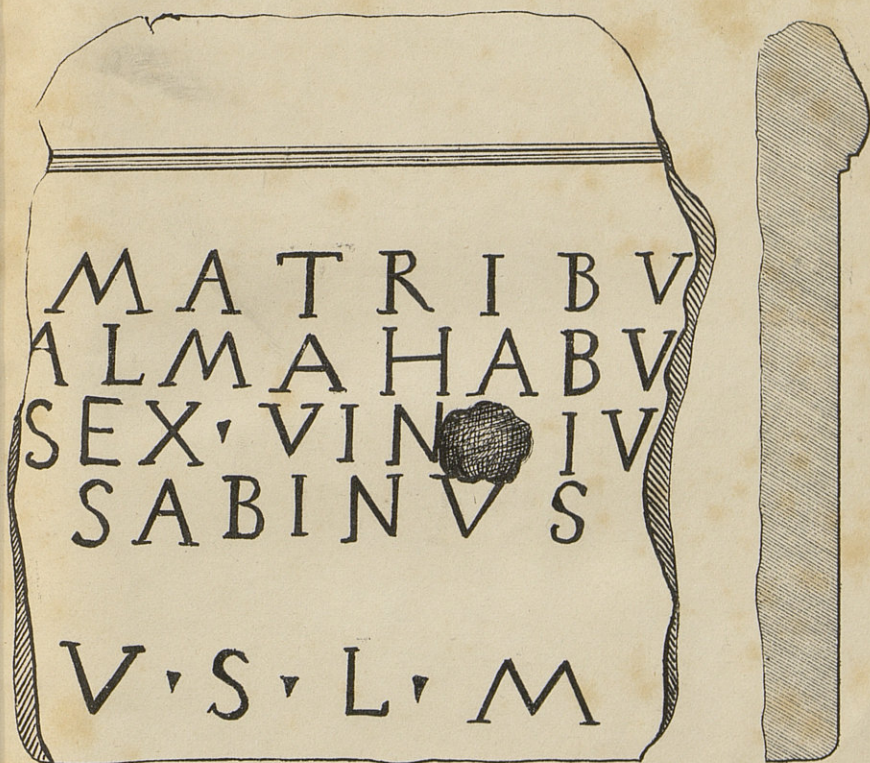 MATRIBV
ALMAHABV
SEX▾VIN IV
SABINVS
V▾S▾L▾M